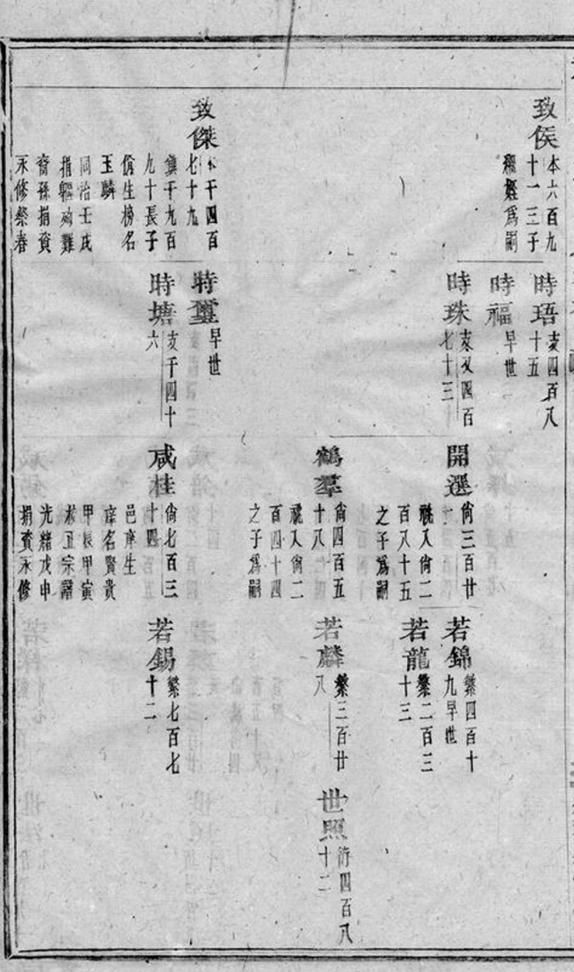 致侯
本六百九
十一三子
為嗣
致傑
本千四百
七十九
鎮千九百
九十長子
偹生榜名
玉麟
同治壬戌
指軀殉難
裔孫捐資
永修祭春
時珸
亥四百八
十五
時福
早世
時珠
亥又四百
七十三
時璽
早世
時塘
亥千四十
六
開選
尙三百廿
二
號入尙二
百八十五
之子爲嗣
鶴羣
尙四百五
十八
號入尙二
百四十四
之子爲嗣
咸桂
尙七百三
十四
邑庠生
庠名賢貴
甲辰甲寅
求正宗譜
光緒戊申
捐資永修
若錦
繁四百十
九早世
若龍
繁二百三
十三
若麟
繁三百廿
八
若錫
繁七百七
十二
世照
衍四百八
十二